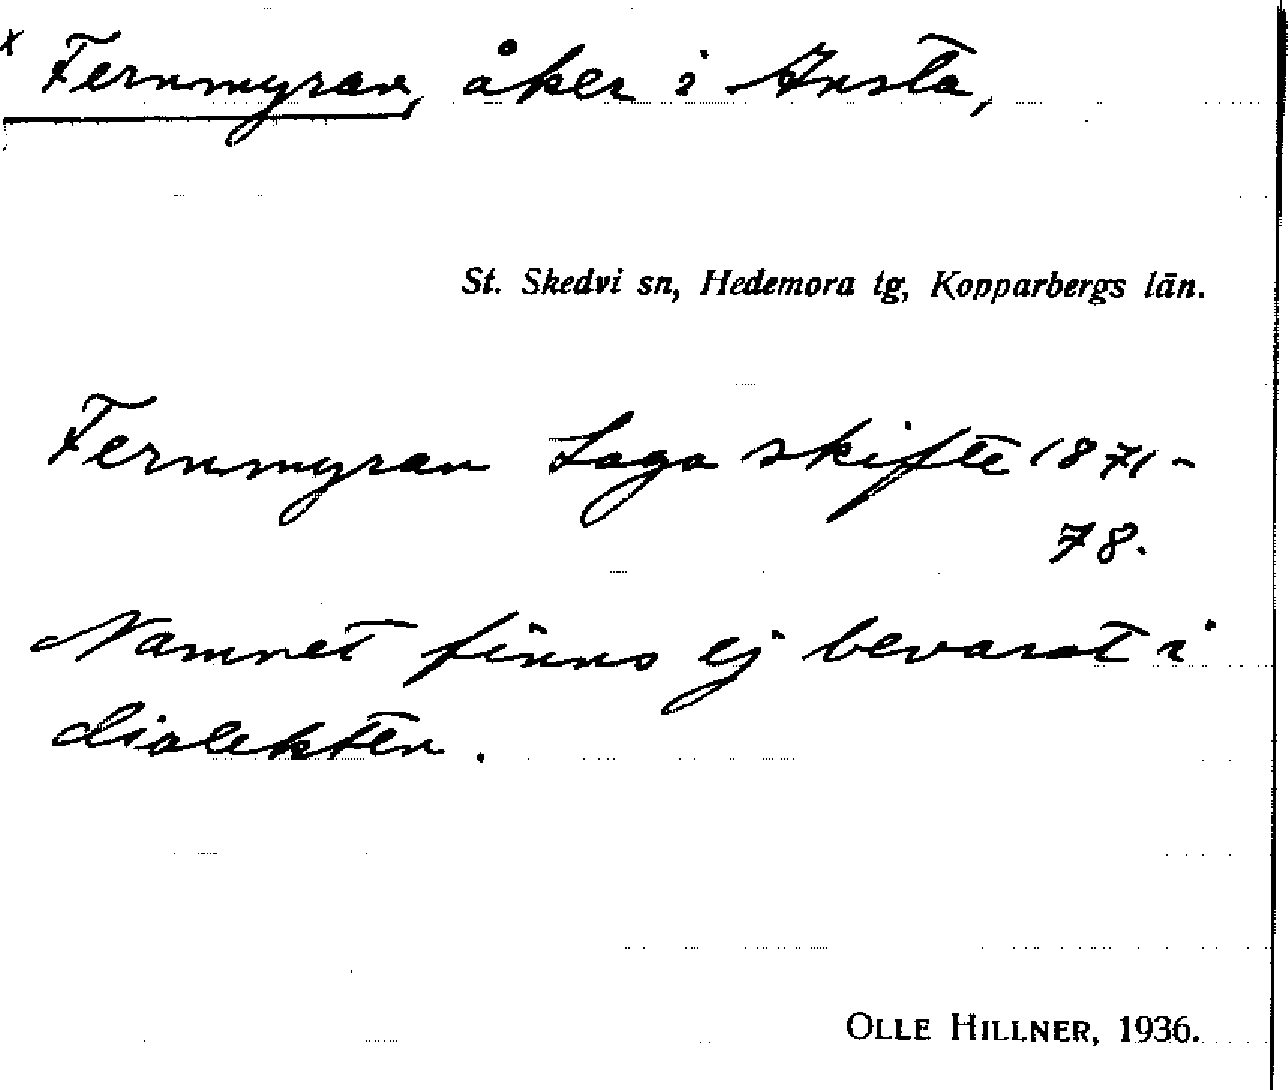 x Fernmyran, åker i Ansta,
St. Skedvi sn, Hedemora tg, Kopparbergs län.
Fernmyran Laga skifte 1871-
78.
Namnet finns ej bevarat i
dialekten.
OLLE HILLNER, 1936.